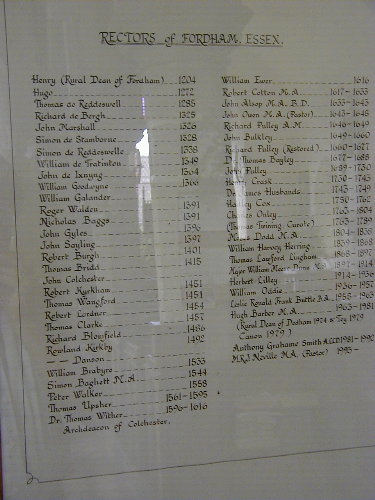 RECTORS of FORDHAM. ESSEX.
Henry (Rural Dean of Fordham) 1204
Hugo 1272
Thomas de Reddeswell 1285
Richard de Bergh 1325
John Marshall 1326
Simon de Stamborne 1328
Simon de Reddeswelle 1338
William de 1349
John de 1364
William Goodwyne 1366
William Galander
Roger Walden 1391
Nicholas Baggs 1391
John Gyles 1396
John Sayling 1397
Robert Burgh 1401
Thomas Bridd 1415
John Colchester
Robert Kyrkham 1451
Thomas Wangford 1451
Robert Lordner 1454
Thomas Clarke 1457
Richard Bloyfield 1486
Rowland Kirkby 1492
— — Danson
William Brabyre 1533
Simon Baghett M.A. 1544
Peter Walker 1558
Thomas Upsher 1561-1595
Dr. Thomas Wither 1596-1616
Archdeacon of Colchester.
William Ewer 1616
Robert Cotton M.A. 1617-1633
John Alsop M.A. B.D. 1633-1643
John Owen M.A. (Pastor) 1643-1646
Richard Pulley A.M. 1646-1649
John Bulkley 1649-1660
Richard Pulley (Restored) 1660-1677
Dr. Thomas Bayley 1677-1688
John Pulley 1689-1730
Henry Crask 1730-1743
Dr. James Husbands 1743-1749
Hadley Cox 1750-1762
Charles Onley 1763-1804
(Thomas Twining. Curate) 1763-1789
Moses Dodd M.A. 1804-1839
William Harvey Herring 1839-1868
Thomas Layford Lingham 1868-1897
Major William Meere M.A. 1897-1914
Herbert Lilley 1914-1936
William Oddie 1936-1957
Leslie Ronald Frank Buttle B.A. 1958-1963
Hugh Barber M.A. 1963-1981
(Rural Dean of Dedham 1974 & Tey 1979
Canon 1979)
Anthony Grahame Smith A.C.C.D. 1981-1992
M.R.J. Neville M.A. (Pastor) 1993-